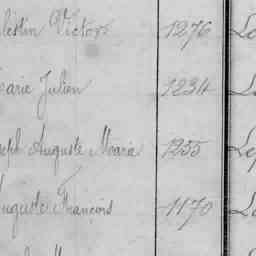 lestin Victor 1276
arie Julien 1234
seph Auguste Marie 1255
Auguste François 1170